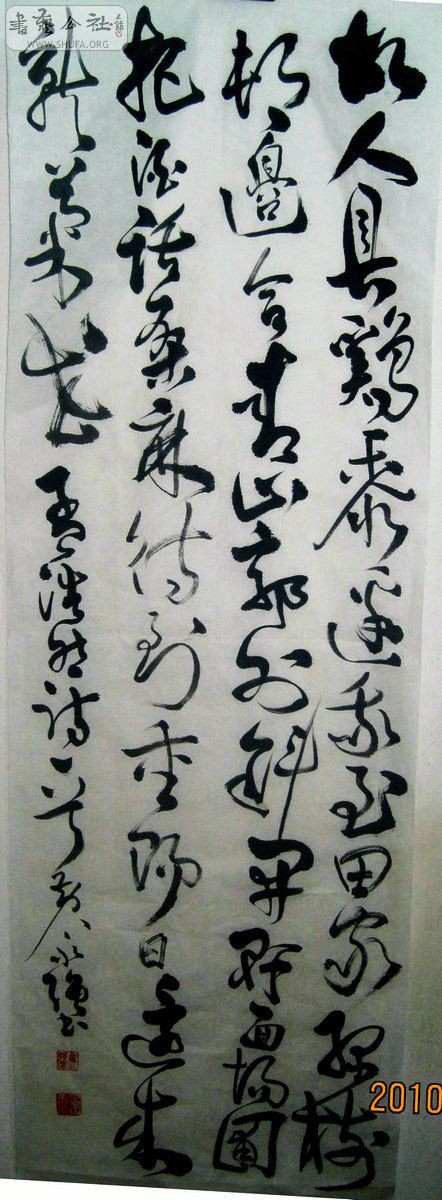 書法公社
WWW.SHUFA.ORG
故人具鷄黍邀我至田家綠樹
村邊合青山郭外斜開軒面場圃
把酒話桑麻待到重陽日還來
就菊花 孟浩然詩一首 黄永强書
2010